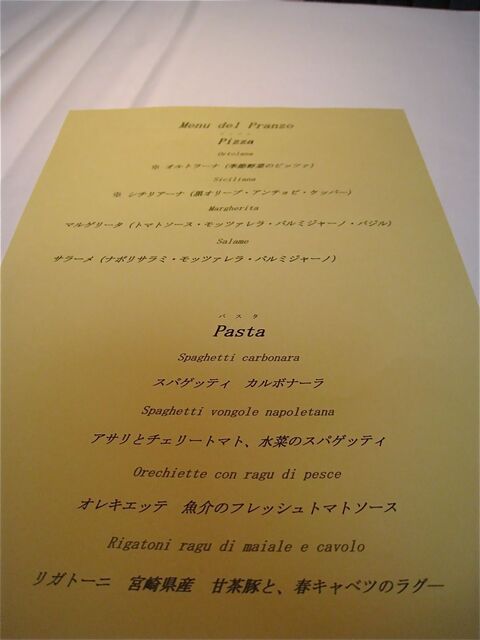 Menu del Pranzo
Pizza
Ortolana
※ オルトラーナ (季節野菜のピッツァ)
Siciliana
※ シチリアーナ (黒オリーブ・アンチョビ・ケッパー)
Margherita
マルゲリータ (トマトソース・モッツァレラ・パルミジャーノ・バジル)
Salame
サラーメ (ナポリサラミ・モッツァレラ・パルミジャーノ)
パスタ
Pasta
Spaghetti carbonara
スパゲッティ カルボナーラ
Spaghetti vongole napoletana
アサリとチェリートマト、水菜のスパゲッティ
Orechiette con ragu di pesce
オレキエッテ 魚介のフレッシュトマトソース
Rigatoni ragu di maiale e cavolo
リガトーニ 宮崎県産 甘茶豚と、春キャベツのラグー